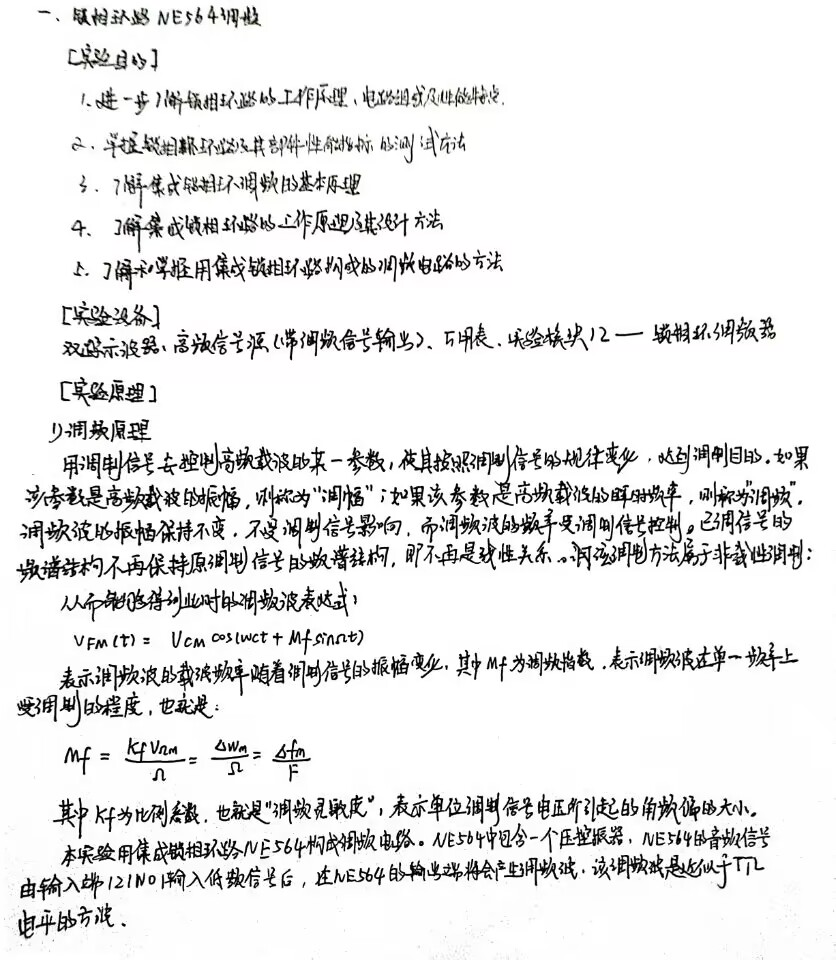 一、锁相环路NE564调频
[实验目的]
1. 进一步了解锁相环路的工作原理、电路组成及性能特点.
2. 掌握锁相环路及其部件性能指标的测试方法
3. 了解集成锁相环调频的基本原理
4. 了解集成锁相环路的工作原理及其设计方法
5. 了解和掌握用集成锁相环路构成的调频电路的方法
[实验设备]
双踪示波器、高频信号源(带调频信号输出)、万用表、实验模块12 — 锁相环调频器
[实验原理]
1)调频原理
用调制信号去控制高频载波的某一参数,使其按照调制信号的规律变化,达到调制目的。如果
该参数是高频载波的振幅,则称为"调幅";如果该参数是高频载波的瞬时频率,则称为"调频"。
调频波的振幅保持不变,不受调制信号影响,而调频波的频率受调制信号控制。已调信号的
频谱结构不再保持原调制信号的频谱结构,即不再是线性关系。调制方法属于非线性调制:
从而能够得到此时的调频波表达式:
VFM(t) = VCM cos(wct + Mf sinΩt)
表示调频波的载波频率随着调制信号的振幅变化,其中Mf为调频指数,表示调频波在单一频率上
受调制的程度,也就是:
Mf = KfVΩm/Ω = Δwm/Ω = Δfm/F
其中Kf为比例系数,也就是"调频灵敏度",表示单位调制信号电压所引起的角频偏的大小。
本实验用集成锁相环路NE564构成调频电路。NE564中包含一个压控振器,NE564的音频信号
由输入端12IN01输入低频信号后,在NE564的输出端将会产生调频波,该调频波是近似于TTL
电平的方波.